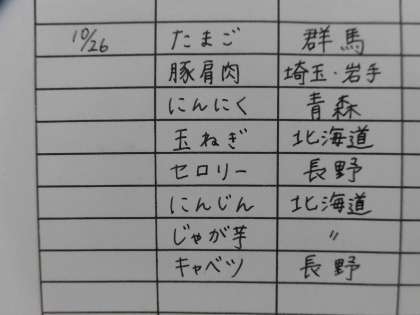 10/26 たまご 群馬
豚肩肉 埼玉・岩手
にんにく 青森
玉ねぎ 北海道
セロリー 長野
にんじん 北海道
じゃが芋 〃
キャベツ 長野